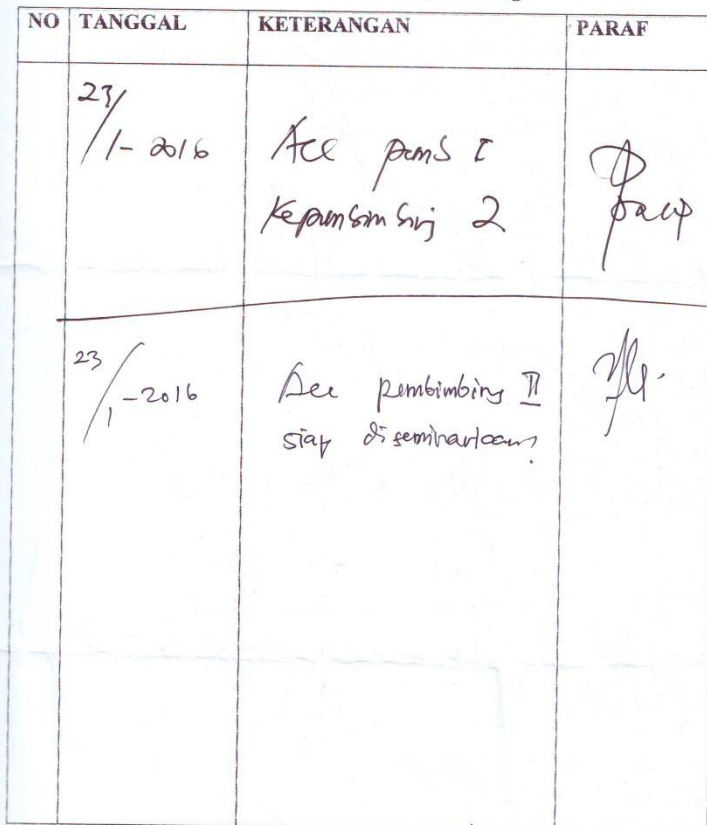 NO TANGGAL KETERANGAN PARAF
23/1-2016 Acc pemb I
Kepembimbing 2
23/1-2016 Acc pembimbing II
siap diseminarkan